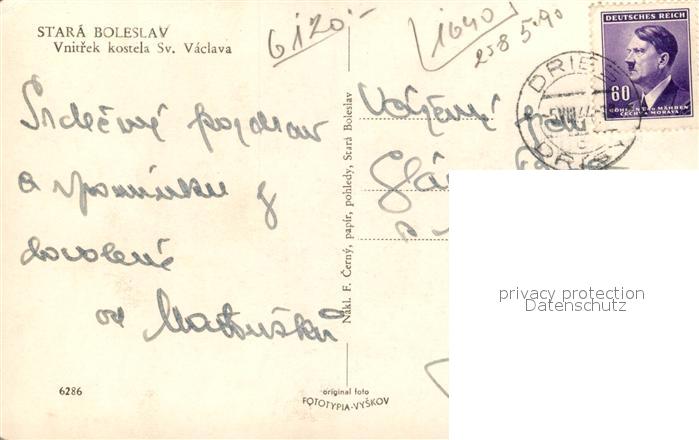 STARÁ BOLESLAV
Vnitřek kostela Sv. Václava
6120.-
1640
258 5.90
DEUTSCHES REICH
60
BÖHMEN UND MÄHREN
ČECHY A MORAVA
Srdečný pozdrav
a vzpomínku z
dovolené
od Matoušků
Nákl. F. Černý, papír, pohledy, Stará Boleslav
Vážený
6286
original foto
FOTOTYPIA-VYŠKOV
privacy protection
Datenschutz